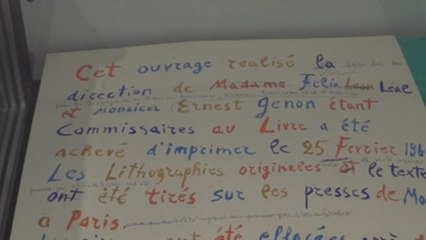 Cet ouvrage realisé la
direction de Madame Felia Leon Leal
et monsieur Ernest Genon étant
Commissaires au Livre a été
achevé d'imprimer le 25 Fevrier 196
Les Lithographies originales et le texte
ont été tirés sur les presses de Mo
a Paris
ont été effacées